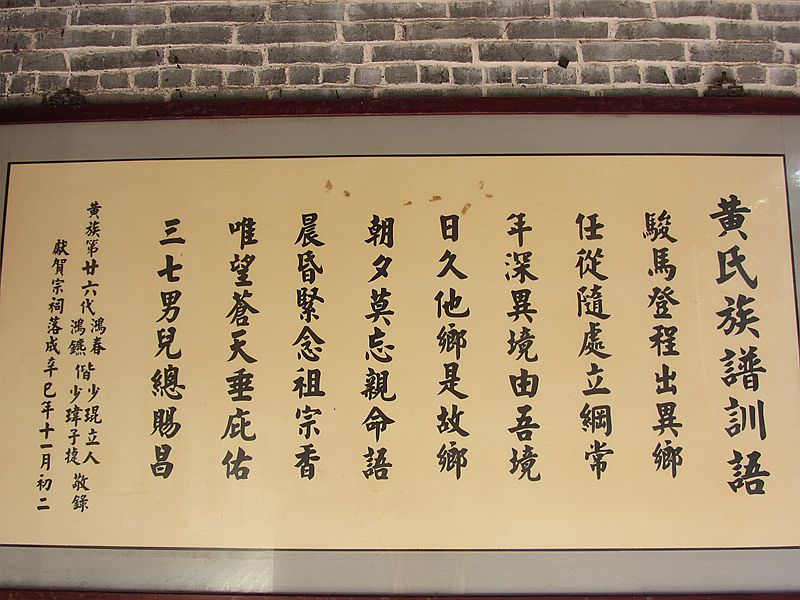 黃氏族譜訓語
駿馬登程出異鄉
任從隨處立綱常
年深異境由吾境
日久他鄉是故鄉
朝夕莫忘親命語
晨昏緊念祖宗香
唯望蒼天垂庇佑
三七男兒總賜昌
黃族第廿六代 鴻春 鴻鑣 偕 少琨 立人 少瑋 子捷 敬錄
獻賀宗祠落成辛巳年十一月初二